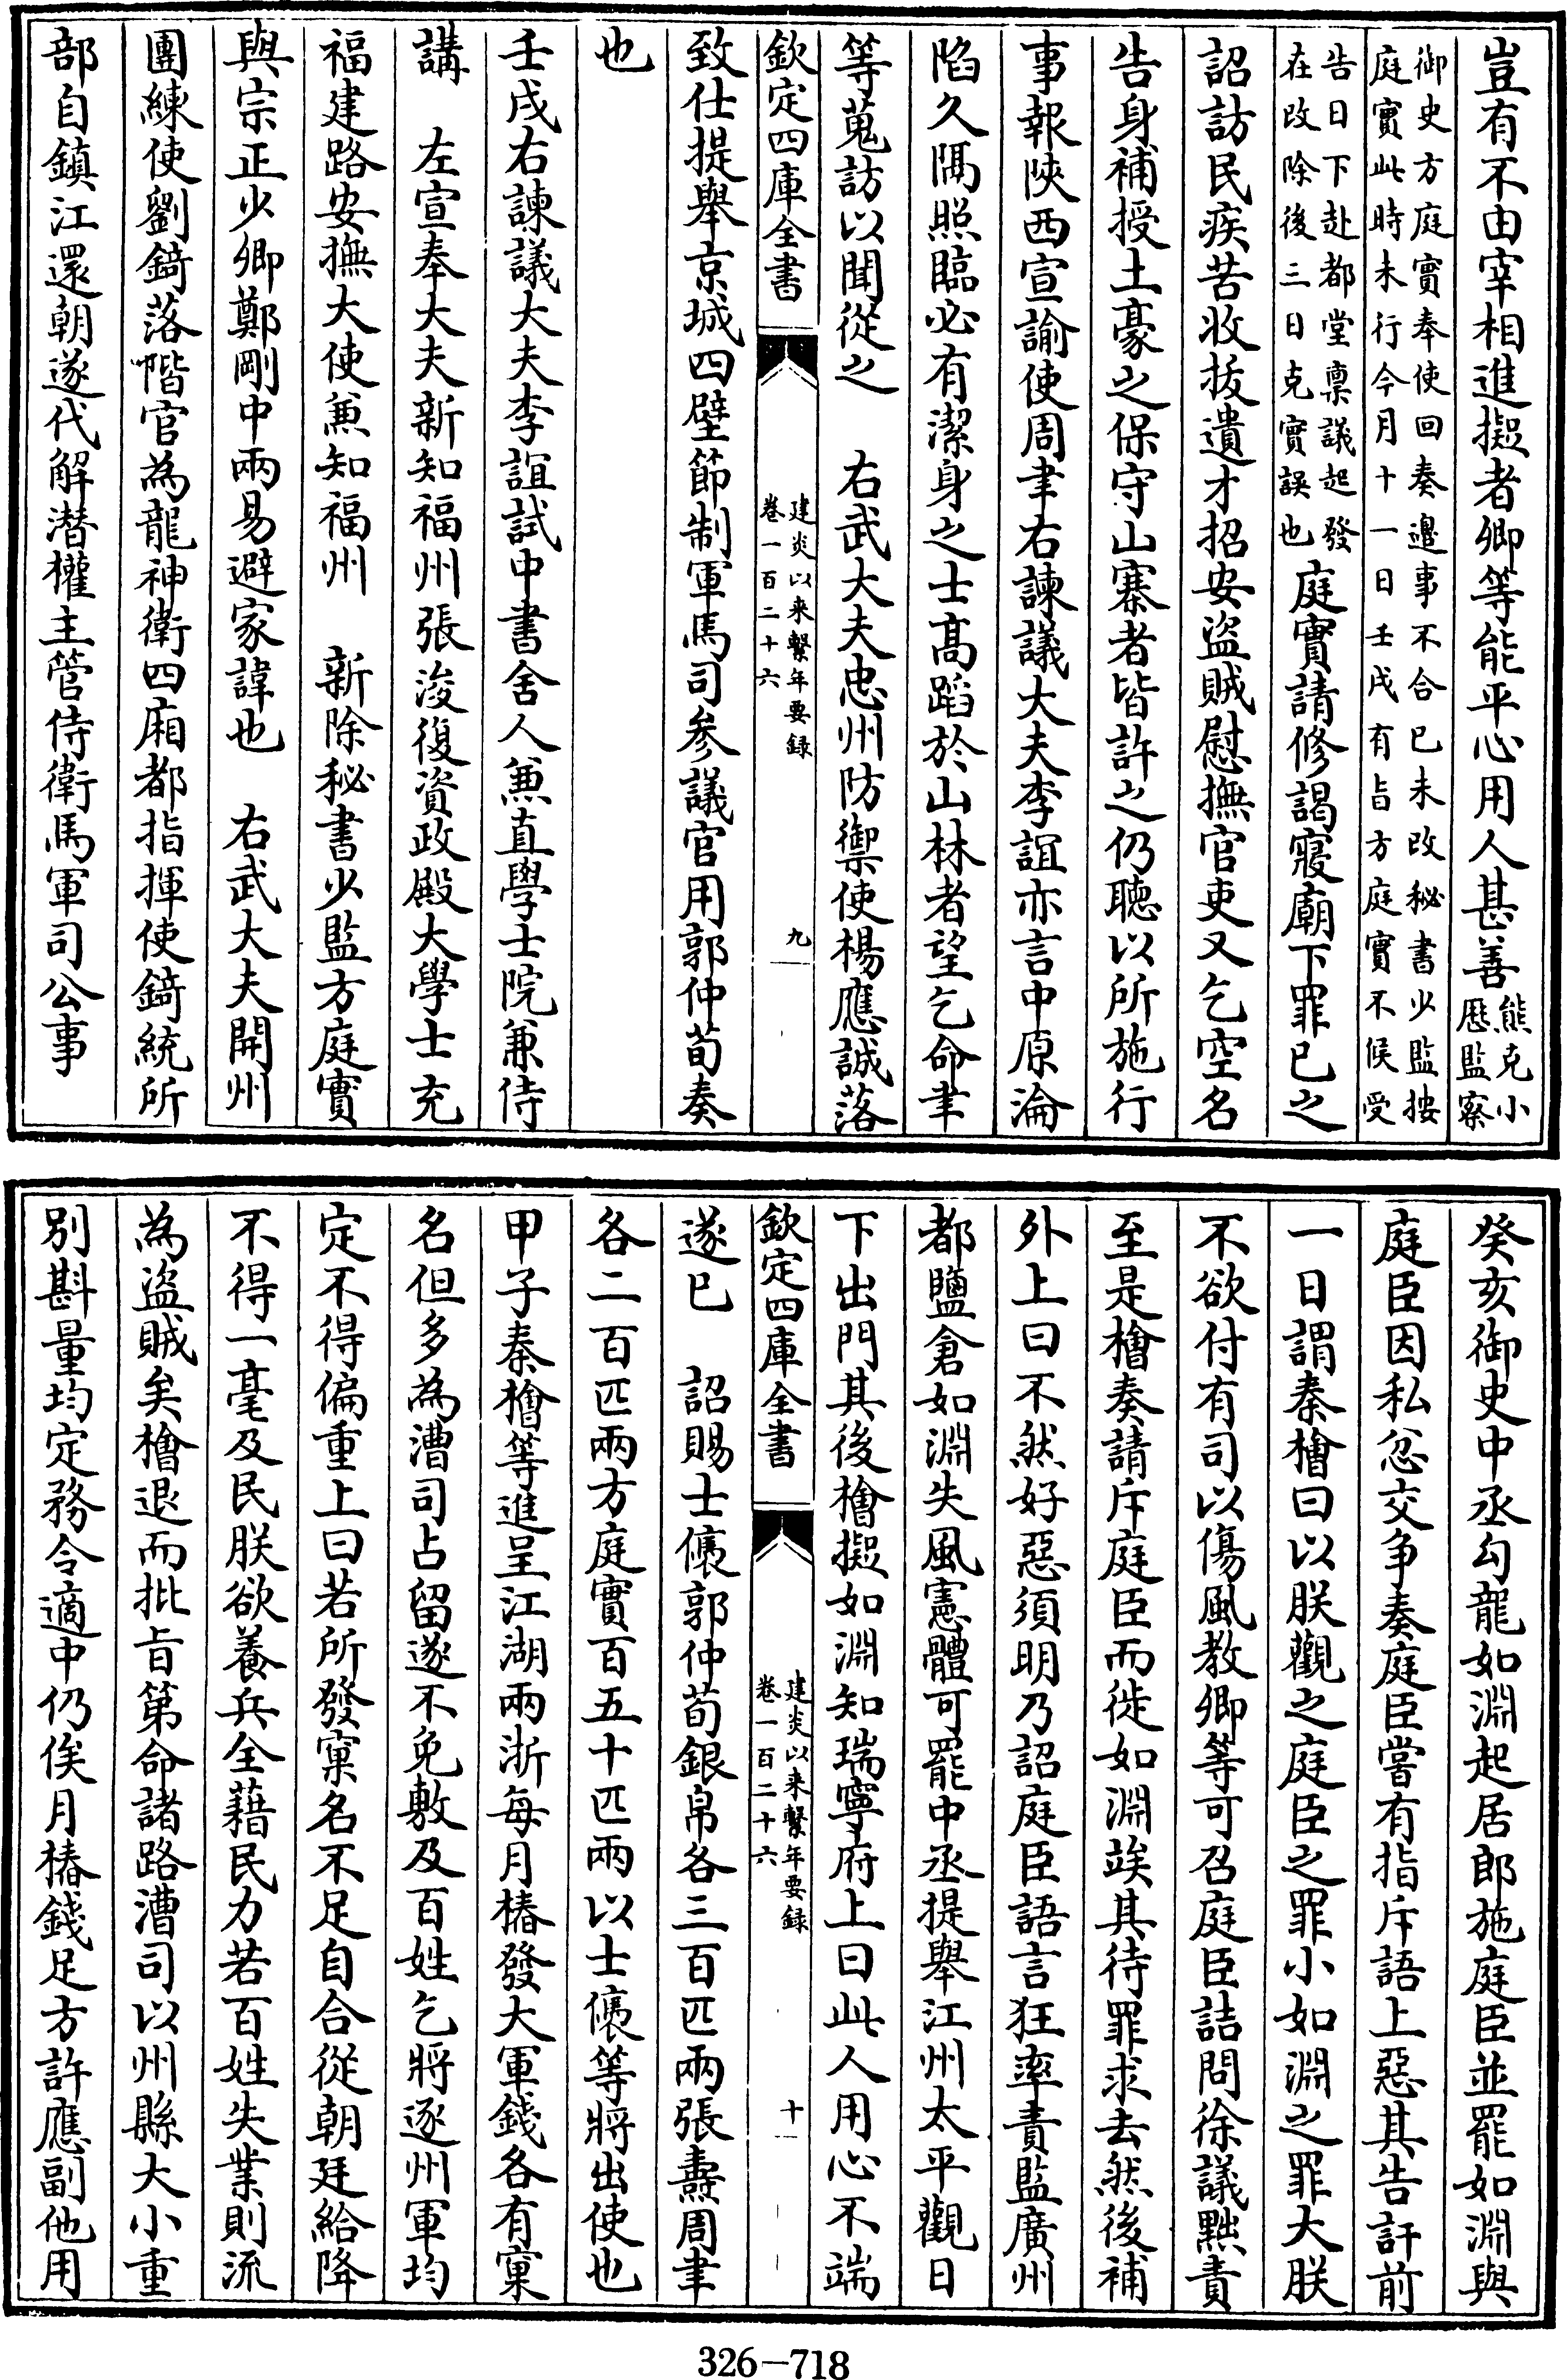 豈有不由宰相進擬者卿等能平心用人甚善熊克小厯監察
御史方庭實奉使回奏邊事不合已未改秘書少監按庭實此時未行今月十一日壬戌有㫖方庭實不候受
告日下赴都堂稟議起發在改除後三日克實誤也庭實請修謁寢廟下罪已之
詔訪民疾苦收拔遺才招安盜賊慰撫官吏又乞空名
告身補授土豪之保守山寨者皆許之仍聽以所施行
事報陜西宣諭使周聿右諫議大夫李誼亦言中原淪
陷久隔照臨必有潔身之士髙蹈於山林者望乞命聿
等蒐訪以聞從之　右武大夫忠州防禦使楊應誠落
欽定四庫全書　建炎以来繫年要録　卷一百二十六　九
致仕提舉京城四壁節制軍馬司參議官用郭仲荀奏
也
壬戌右諫議大夫李誼試中書舍人兼直學士院兼侍
講　左宣奉大夫新知福州張浚復資政殿大學士充
福建路安撫大使兼知福州　新除秘書少監方庭實
與宗正少卿鄭剛中兩易避家諱也　右武大夫開州
團練使劉錡落階官為龍神衛四廂都指揮使錡統所
部自鎮江還朝遂代解潛權主管侍衛馬軍司公事
癸亥御史中丞勾龍如淵起居郎施庭臣並罷如淵與
庭臣因私忿交争奏庭臣嘗有指斥語上惡其告訐前
一日謂秦檜曰以朕觀之庭臣之罪小如淵之罪大朕
不欲付有司以傷風教卿等可召庭臣詰問徐議黜責
至是檜奏請斥庭臣而徙如淵竢其待罪求去然後補
外上曰不然好惡須明乃詔庭臣語言狂率責監廣州
都鹽倉如淵失風憲體可罷中丞提舉江州太平觀日
下出門其後檜擬如淵知瑞寧府上曰此人用心不端
欽定四庫全書　建炎以来繫年要録　卷一百二十六　十
遂已　詔賜士㒟郭仲荀銀帛各三百匹兩張燾周聿
各二百匹兩方庭實百五十匹兩以士㒟等將出使也
甲子秦檜等進呈江湖兩浙每月樁發大軍錢各有窠
名但多為漕司占留遂不免敷及百姓乞將逐州軍均
定不得偏重上曰若所發窠名不足自合從朝廷給降
不得一毫及民朕欲養兵全藉民力若百姓失業則流
為盜賊矣檜退而批㫖第命諸路漕司以州縣大小重
别斟量均定務令適中仍俟月樁錢足方許應副他用
326—718